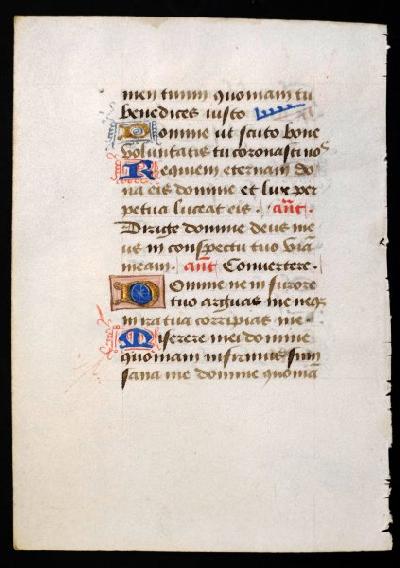 men tuum quoniam tu
benedices iusto
Domine ut scuto bone
voluntatis tu coronasti nos
Requiem eternam do
na eis domine et lux per
petua luceat eis. Añt.
Dirige domine deus me
us in conspectu tuo viā
meam. añt Convertere.
Domine ne in furore
tuo arguas me neqz
in ira tua corripias me
Miserere mei domine
quoniam infirmus sum
sana me domine quoniā